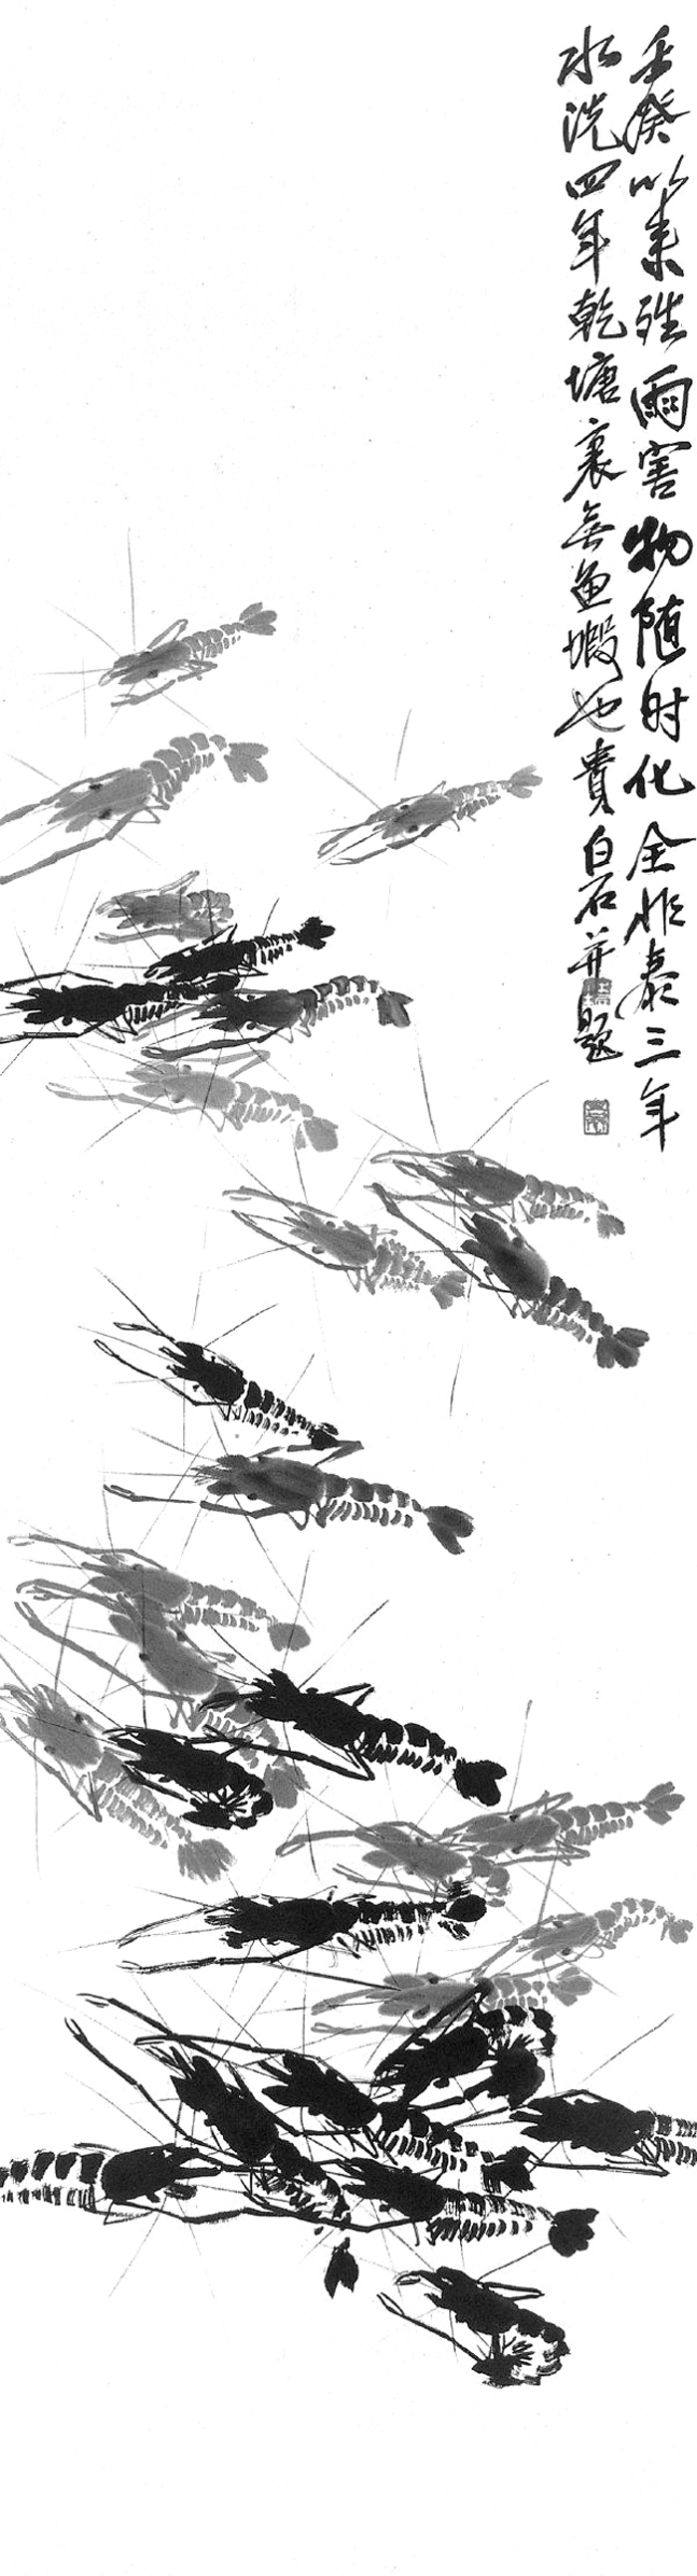 壬癸以来殊雨害物随时化全非泰三年
水洗四年乾塘裏無魚蝦也貴白石并題